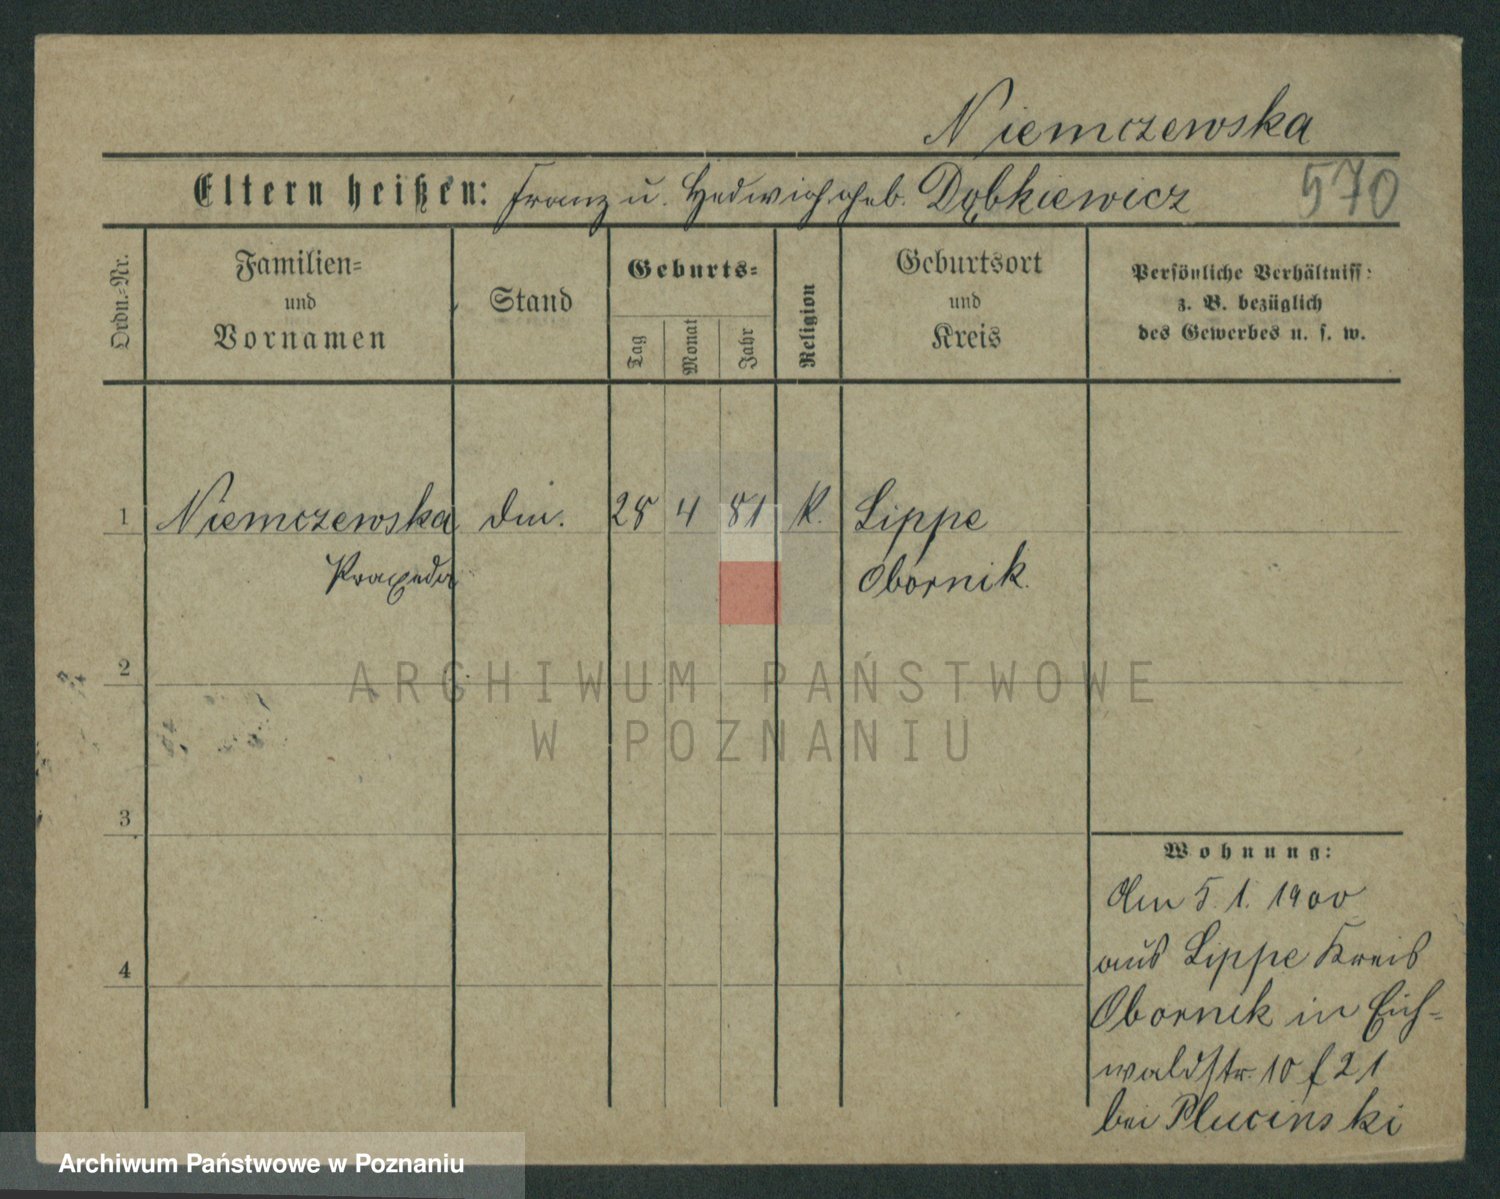 Niemczewska
Eltern heißen: Franz u. Hedwig geb. Dąbkiewicz 570
Ordn.=Nr.
Familien=
und
Vornamen
Stand
Geburts=
Tag
Monat
Jahr
Religion
Geburtsort
und
Kreis
Persönliche Verhältniss:
z. B. bezüglich
des Gewerbes u. s. w.
1 Niemczewska 28 4 81 K. Lippe
Praxeda Obornik.
2
3
4
Wohnung:
Am 5. 1. 1900
aus Lippe Kreis
Obornik in Eich=
waldstr. 10 f 21
bei Plucinski
ARCHIWUM PAŃSTWOWE
W POZNANIU
Archiwum Państwowe w Poznaniu